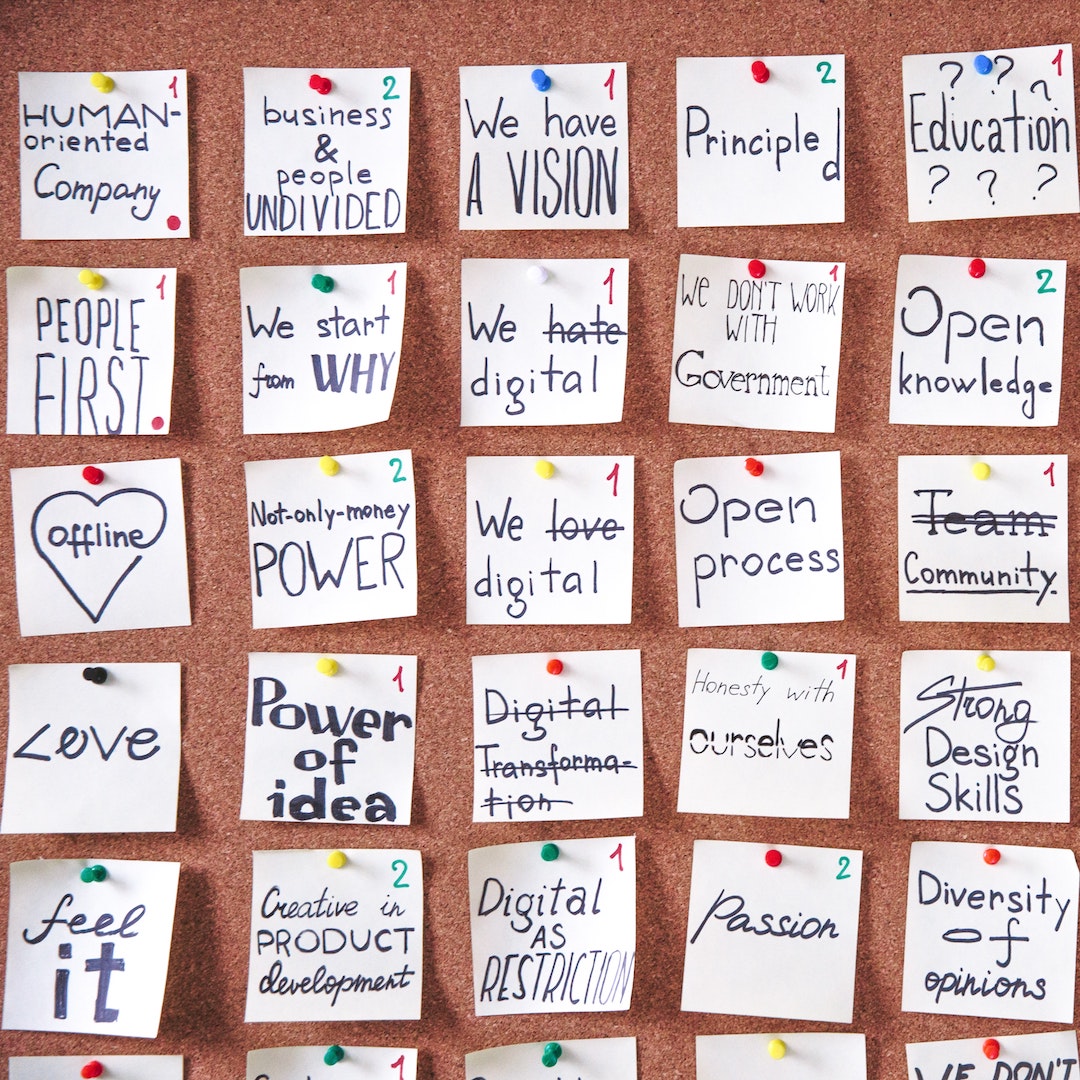 1
HUMAN-
oriented
Company
2
business
&
people
UNDIVIDED
1
We have
A VISION
2
Principled
1
? ? ?
Education
? ? ?
1
PEOPLE
FIRST
1
We start
from WHY
1
We hate
digital
1
WE DON'T WORK
WITH
Government
2
Open
knowledge
offline
2
Not-only-money
POWER
1
We love
digital
Open
process
1
Team
Community.
Love
1
Power
of
idea
Digital
Transforma-
tion
1
Honesty with
ourselves
Strong
Design
Skills
feel
it
2
Creative in
PRODUCT
development
1
Digital
AS
RESTRICTION
2
Passion
Diversity
of
opinions
1
WE DON'T